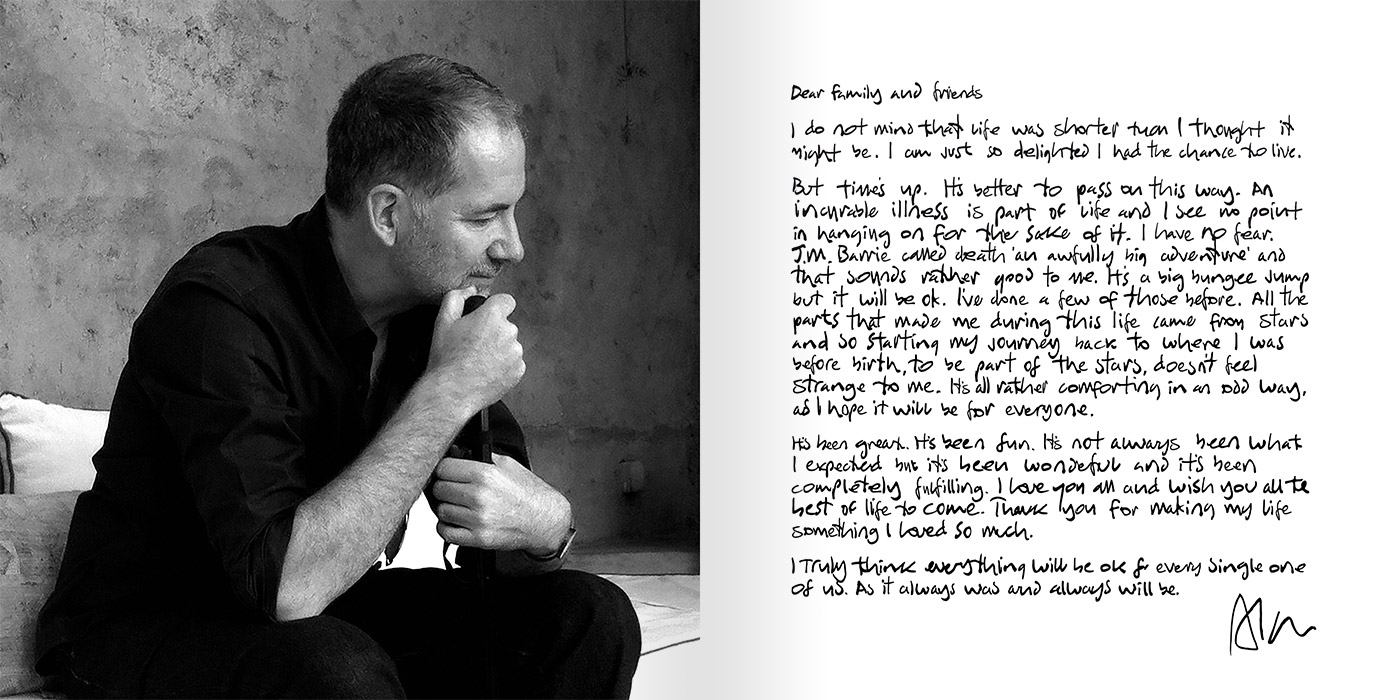 Dear family and friends
I do not mind that life was shorter than I thought it
might be. I am just so delighted I had the chance to live.
But time's up. It's better to pass on this way. An
incurable illness is part of life and I see no point
in hanging on for the sake of it. I have no fear.
J.M. Barrie called death 'an awfully big adventure' and
that sounds rather good to me. It's a big bungee jump
but it will be ok. I've done a few of those before. All the
parts that made me during this life came from stars
and so starting my journey back to where I was
before birth, to be part of the stars, doesn't feel
strange to me. It's all rather comforting in an odd way,
as I hope it will be for everyone.
It's been great. It's been fun. It's not always been what
I expected but it's been wonderful and it's been
completely fulfilling. I love you all and wish you all the
best of life to come. Thank you for making my life
something I loved so much.
I truly think everything will be ok for every single one
of us. As it always was and always will be.
Alan